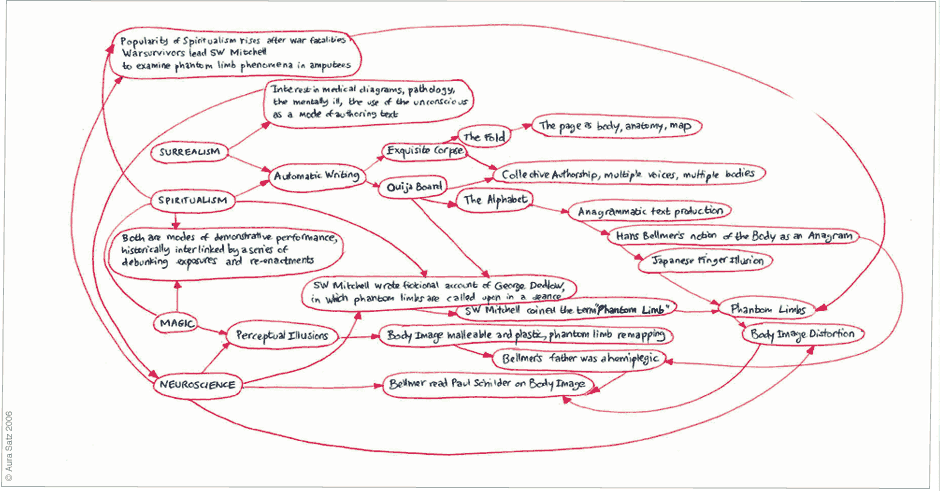 Popularity of Spiritualism rises after war fatalities
War survivors lead SW Mitchell
to examine phantom limb phenomena in amputees
Interest in medical diagrams, pathology,
the mentally ill, the use of the unconscious
as a mode of authoring text
The Fold
The page as body, anatomy, map
SURREALISM
Exquisite Corpse
Automatic Writing
Collective Authorship, multiple voices, multiple bodies
Ouija Board
SPIRITUALISM
The Alphabet
Anagrammatic text production
Both are modes of demonstrative performance,
historically interlinked by a series of
debunking exposures and re-enactments
Hans Bellmer's notion of the Body as an Anagram
Japanese Finger Illusion
SW Mitchell wrote fictional account of George Dedlow,
in which phantom limbs are called upon in a seance
SW Mitchell coined the term "Phantom Limb"
Phantom Limbs
MAGIC
Perceptual Illusions
Body Image malleable and plastic, phantom limb remapping
Body Image Distortion
Bellmer's father was a hemiplegic
NEUROSCIENCE
Bellmer read Paul Schilder on Body Image
© Aura Satz 2006